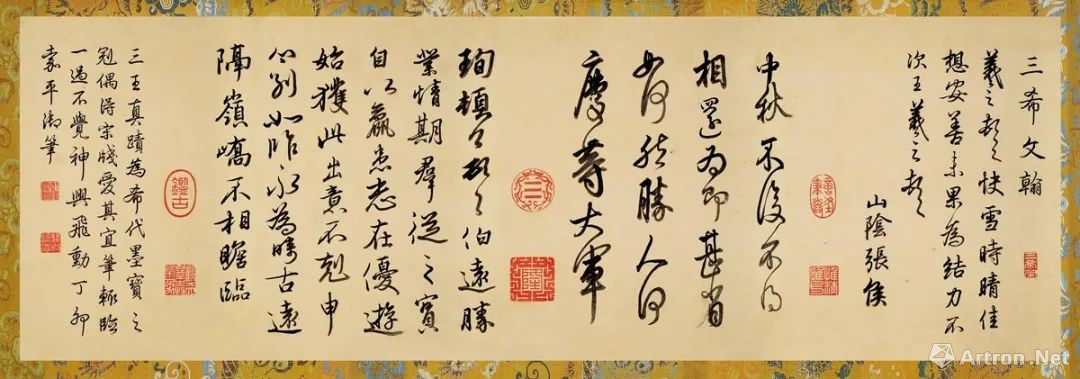 三希文翰
羲之頓首快雪時晴佳
想安善未果為結力不
次王羲之頓首
山陰張侯
中秋不復不得
相還為即甚省
如何然勝人何
慶等大軍
珣頓首頓首伯遠勝
業情期羣從之寶
自以羸患志在優遊
始獲此出意不剋申
分別如昨永為疇古遠
隔嶺嶠不相瞻臨
三王真蹟為希代墨寶之
冠偶得宋牋愛其宜筆輒臨
一過不覺神興飛動丁卯
嘉平御筆
鑑古
Artron.Net